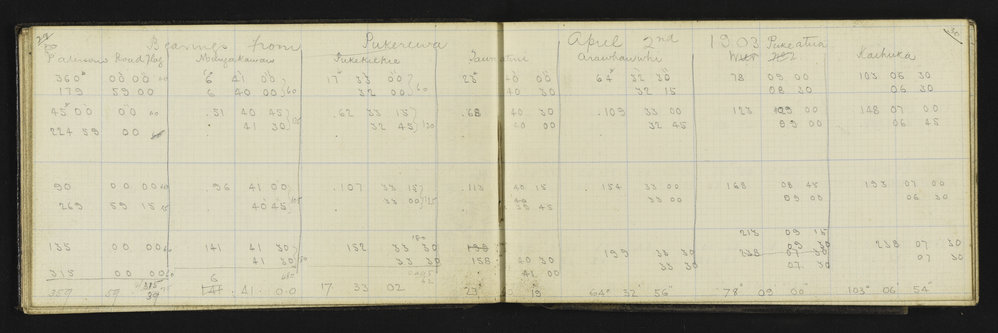 29 Bearings from Pukerewa April 2nd 1903 Pukeatua 30
Road Flag Kaihuka
360° 00 00 00 6° 41 00 17° 33 00 23° 40 00 64° 32 30 78 09 00 103 06 30
179 59 00 6 40 00 60 32 00 60 40 30 32 15 08 30 06 30
45 00 00 00 .51 40 45 .62 33 15 .68 40 30 .109 33 00 123 09 00 148 07 00
224 59 00 41 30 32 45 40 00 32 45 09 00 06 45
90 00 00 00 .96 41 00 .107 33 15 .113 40 15 .154 33 00 168 08 45 193 07 00
269 59 15 40 45 105 33 00 125 45 33 00 09 00 06 30
213 09 15
135 00 00 00 141 41 30 152 33 30 199 33 30 09 30 238 07 30
41 30 33 30 158 40 30 33 30 238 07 30 07 30
315 00 00 6 41 00 07 30
359 59 141 41 00 17 33 02 23° 40 19 64° 32' 56" 78° 09 00" 103° 06' 54"